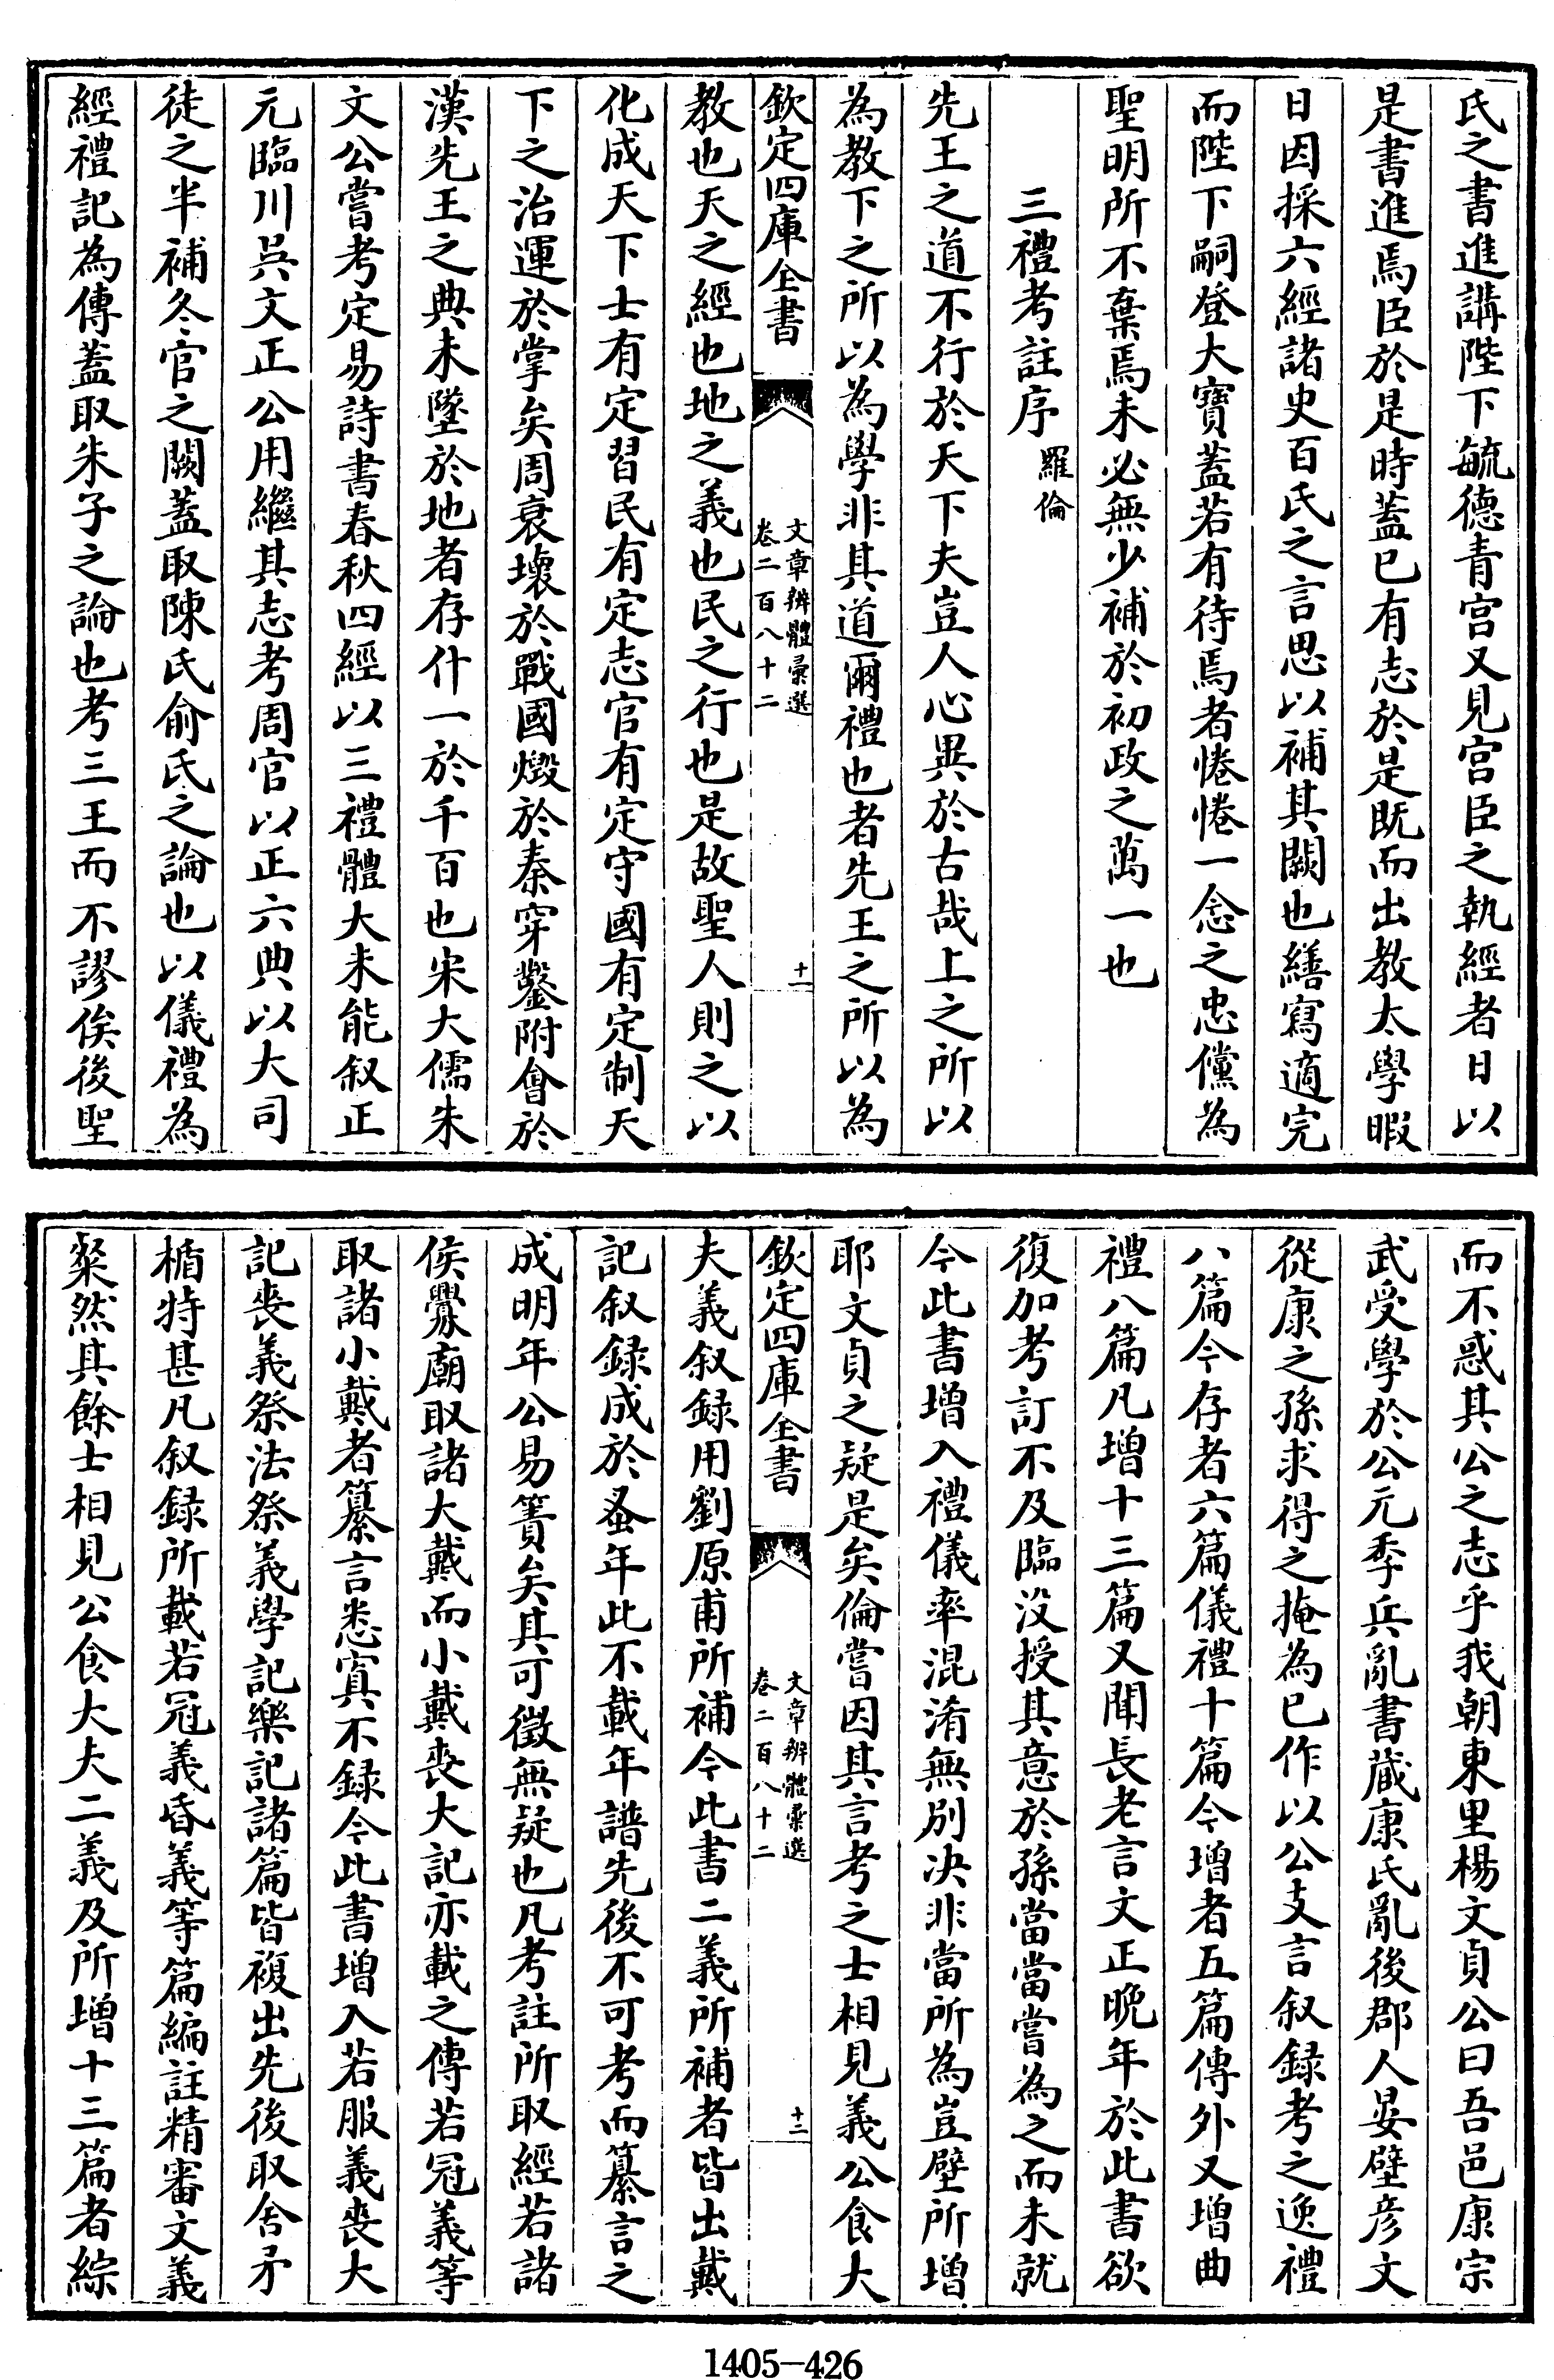 氏之書進講陛下毓德青宫又見宫臣之執經者日以
是書進焉臣於是時蓋已有志於是既而出教太學暇
日因採六經諸史百氏之言思以補其闕也繕寫適完
而陛下嗣登大寶蓋若有待焉者惓惓一念之忠儻為
聖明所不棄焉未必無少補於初政之萬一也
三禮考註序 羅倫
先王之道不行於天下夫豈人心異於古哉上之所以
為教下之所以為學非其道爾禮也者先王之所以為
欽定四庫全書
文章辨體彚選
卷二百八十二
十一
教也天之經也地之義也民之行也是故聖人則之以
化成天下士有定習民有定志官有定守國有定制天
下之治運於掌矣周衰壞於戰國燬於秦穿鑿附會於
漢先王之典未墜於地者存什一於千百也宋大儒朱
文公嘗考定易詩書春秋四經以三禮體大未能叙正
元臨川吳文正公用繼其志考周官以正六典以大司
徒之半補冬官之闕蓋取陳氏俞氏之論也以儀禮為
經禮記為傳蓋取朱子之論也考三王而不謬俟後聖
而不惑其公之志乎我朝東里楊文貞公曰吾邑康宗
武受學於公元季兵亂書藏康氏亂後郡人晏璧彦文
從康之孫求得之掩為已作以公支言叙録考之逸禮
八篇今存者六篇儀禮十篇今增者五篇傳外又增曲
禮八篇凡增十三篇又聞長老言文正晚年於此書欲
復加考訂不及臨没授其意於孫當當嘗為之而未就
今此書增入禮儀率混淆無别决非當所為豈壁所增
耶文貞之疑是矣倫嘗因其言考之士相見義公食大
欽定四庫全書
文章辨體彚選
卷二百八十二
十二
夫義叙録用劉原甫所補今此書二義所補者皆出戴
記叙録成於蚤年此不載年譜先後不可考而纂言之
成明年公易簀矣其可徵無疑也凡考註所取經若諸
侯釁廟取諸大戴而小戴喪大記亦載之傳若冠義等
取諸小戴者纂言悉寘不録今此書增入若服義喪大
記喪義祭法祭義學記樂記諸篇皆複出先後取舍矛
楯特甚凡叙録所載若冠義昏義等篇編註精審文義
粲然其餘士相見公食大夫二義及所增十三篇者綜
1405-426